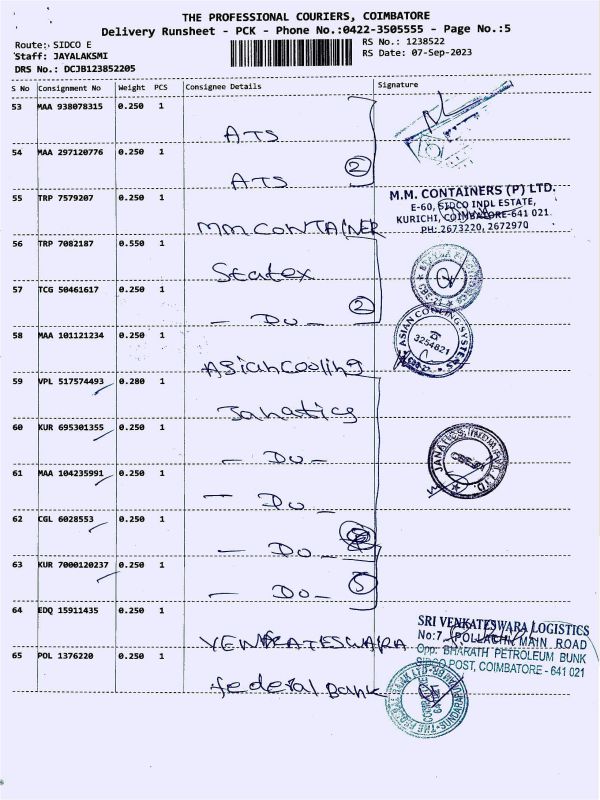 THE PROFESSIONAL COURIERS, COIMBATORE
Delivery Runsheet - PCK - Phone No.:0422-3505555 - Page No.:5
Route: SIDCO E
RS No.: 1238522
Staff: JAYALAKSMI
RS Date: 07-Sep-2023
DRS No.: DCJB123852205
S No Consignment No Weight PCS Consignee Details Signature
53 MAA 938078315 0.250 1 ATS
54 MAA 297120776 0.250 1 ATS
2
55 TRP 7579207 0.250 1 MM CONTAINER
M.M. CONTAINERS (P) LTD.
E-60, SIDCO INDL ESTATE,
KURICHI, COIMBATORE-641 021
PH: 2673220, 2672970
56 TRP 7082187 0.550 1 Statex
57 TCG 50461617 0.250 1 - Do -
2
58 MAA 101121234 0.250 1 Asian Cooling
ASIAN COOLING SYSTEMS
3254821
59 VPL 517574493 0.280 1 Janatics
60 KUR 695301355 0.250 1 - Do -
JANATICS INDIA PVT. LTD.
61 MAA 104235991 0.250 1 - Do -
62 CGL 6028553 0.250 1 - Do -
63 KUR 7000120237 0.250 1 - Do -
5
64 EDQ 15911435 0.250 1 VENKATESWARA
SRI VENKATESWARA LOGISTICS
No:7, POLLACHI MAIN ROAD
Opp: BHARATH PETROLEUM BUNK
SIDCO POST, COIMBATORE - 641 021
65 POL 1376220 0.250 1 federal Bank